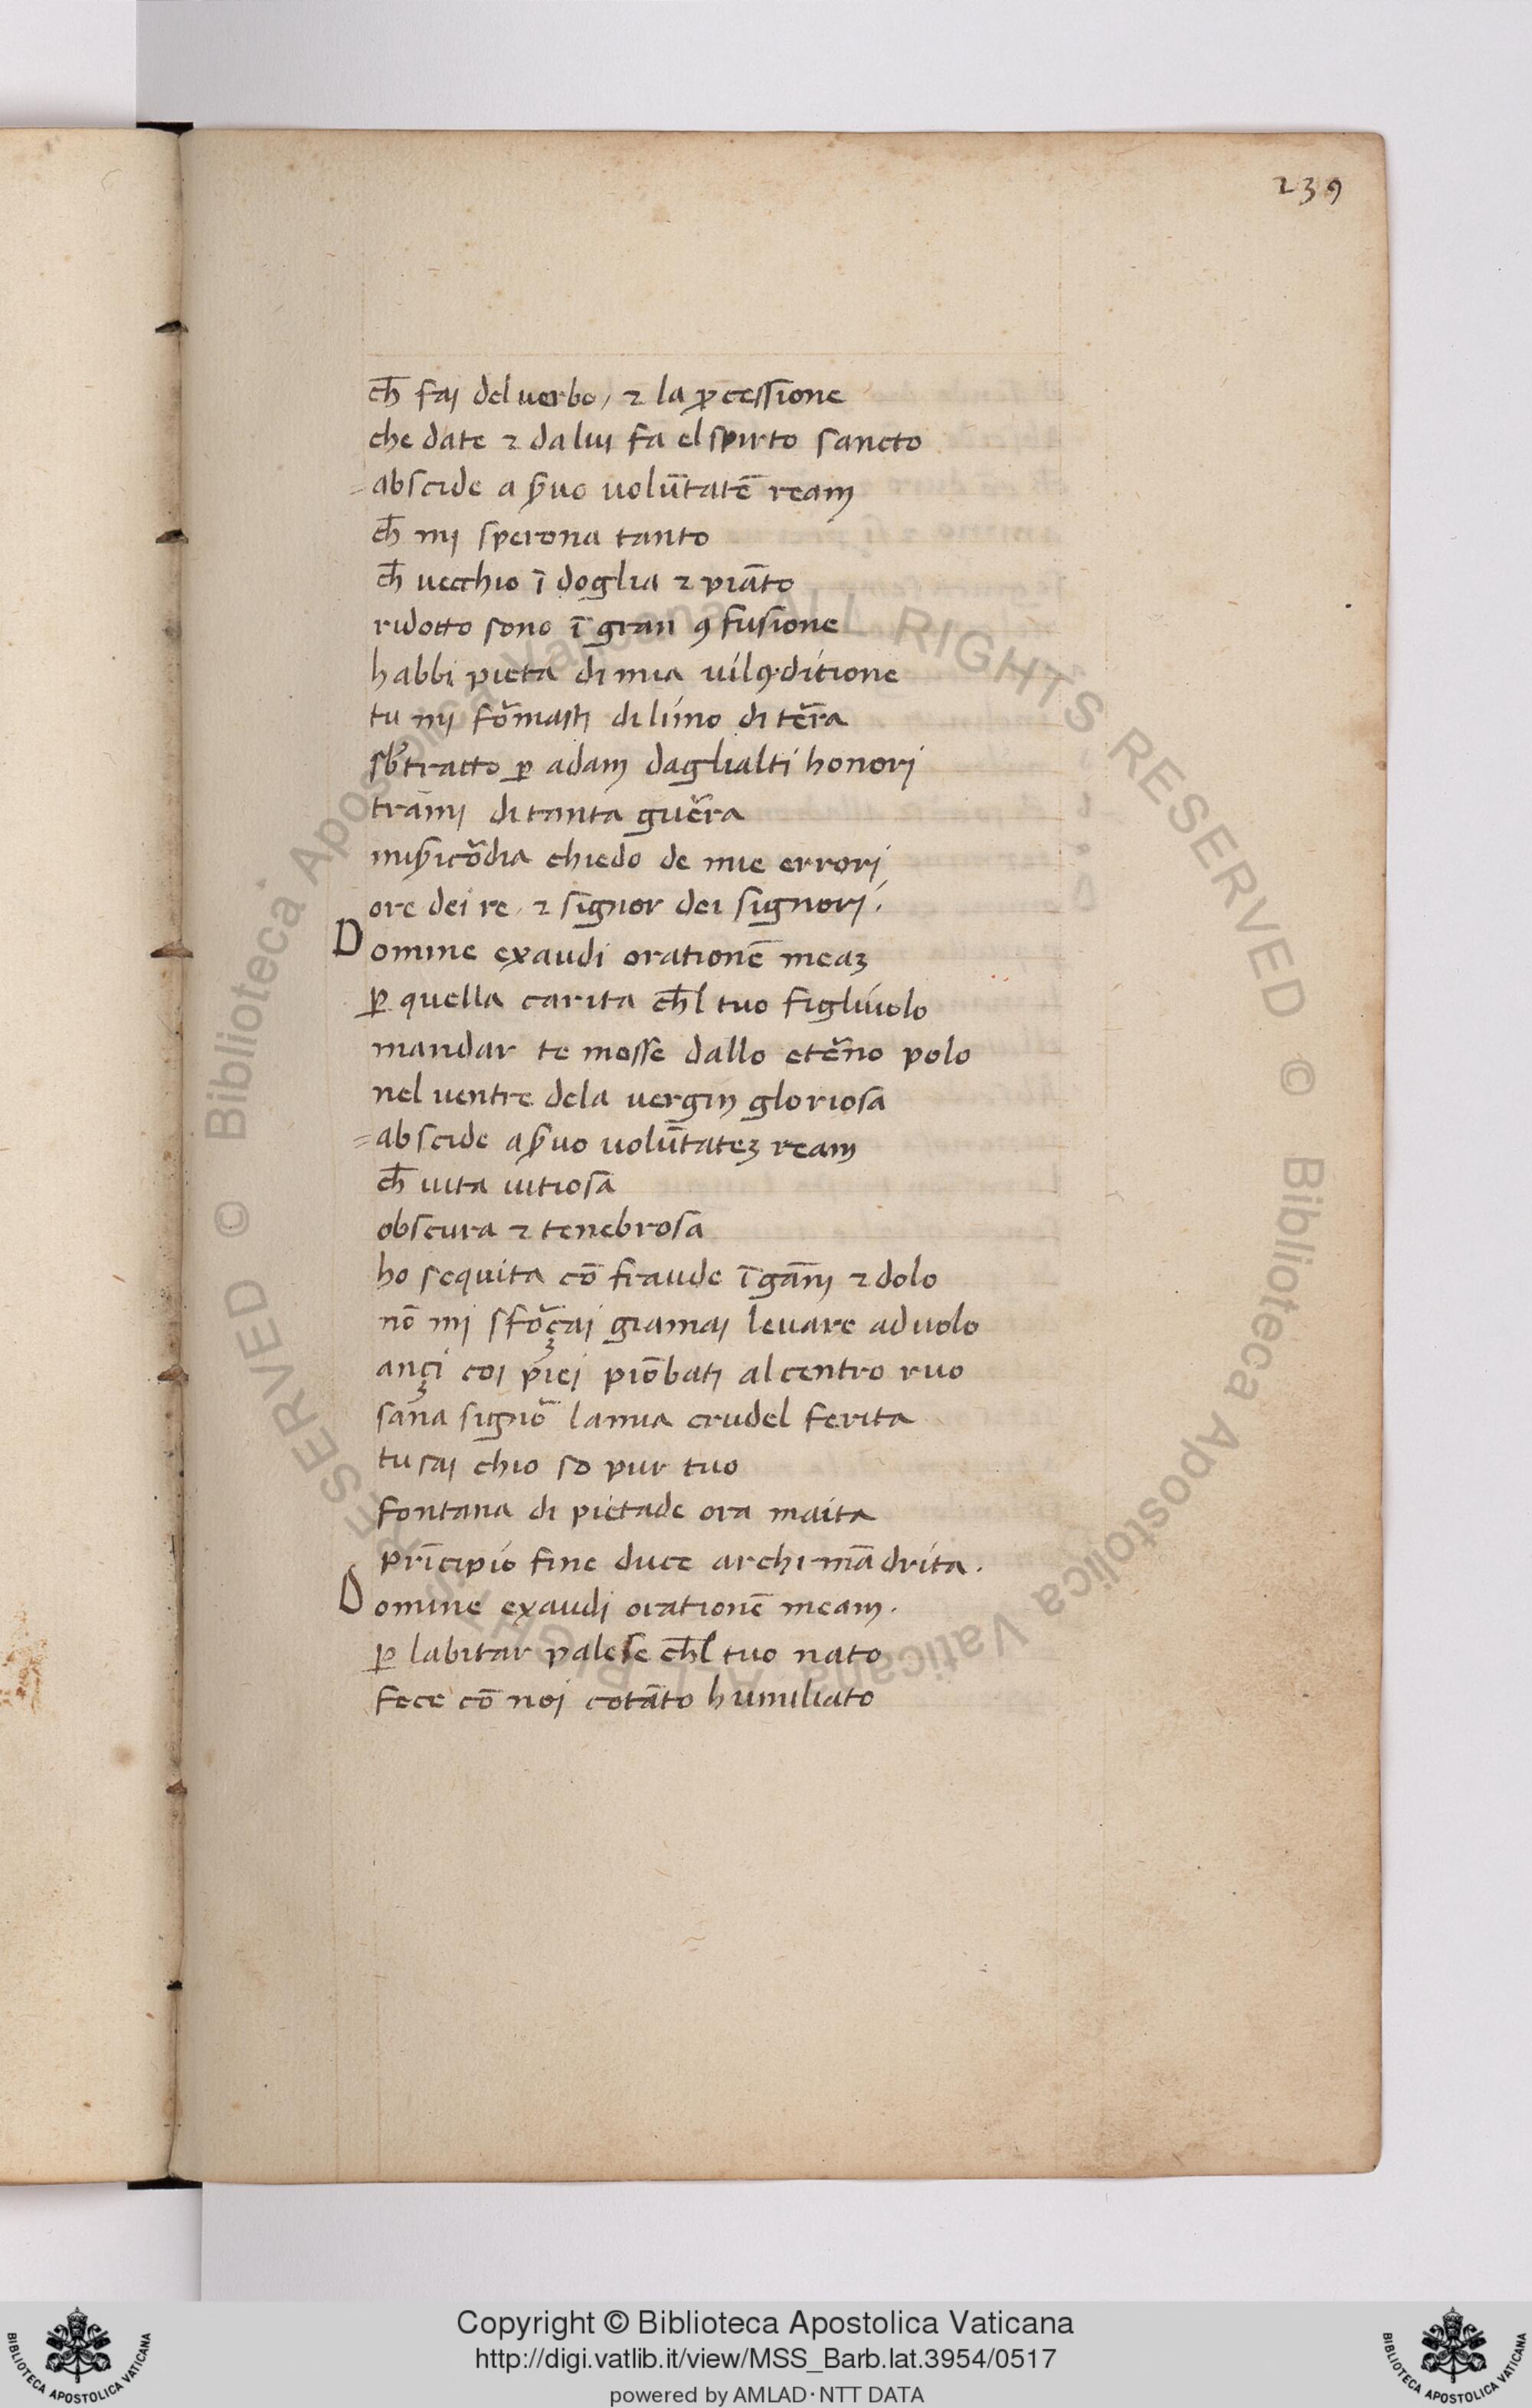 239
ch̅ fai del uerbo / ⁊ la ꝓcessione
che date ⁊ da lui fa el spirto sancto
= abscide a s̄uo uolūtatē ream
ch̅ mi sperona tanto
ch̅ uecchio ī doglia ⁊ piāto
ridotto sono ī gran ꝯfusione
habbi pieta di mia uil ꝯditione
tu mi fōmasti di limo di tēra
sb̄tracto ꝑ adam daglialti honori
trāmi di tanta guēra
mis̄icōdia chiedo de mie errori
ore dei re / ⁊ signor dei signori /
Domine exaudi orationē meaꝫ
ꝑ quella carita ch̅l tuo figliuolo
mandar te mosse dallo etēno polo
nel uentre dela uergin gloriosa
= abscide a s̄uo uolūtateꝫ ream
ch̅ uita uitiosa
obscura ⁊ tenebrosa
ho sequita cō fraude īgāni ⁊ dolo
nō mi sfōçai giamai leuare aduolo
ançi coi piei piōbati al centro ruo
sana signō la mia crudel ferita
tu sai chio so pur tuo
fontana di pietade ora maita
prīcipio fine duce archimādrita .
Domine exaudi orationē meam .
ꝑ labitar palese ch̅l tuo nato
fece cō noi cotāto humiliato
Copyright © Biblioteca Apostolica Vaticana
http://digi.vatlib.it/view/MSS_Barb.lat.3954/0517
powered by AMLAD · NTT DATA
BIBLIOTECA APOSTOLICA VATICANA
BIBLIOTECA APOSTOLICA VATICANA
© Biblioteca Apostolica Vaticana ALL RIGHTS RESERVED © Biblioteca Apostolica Vaticana ALL RIGHTS RESERVED